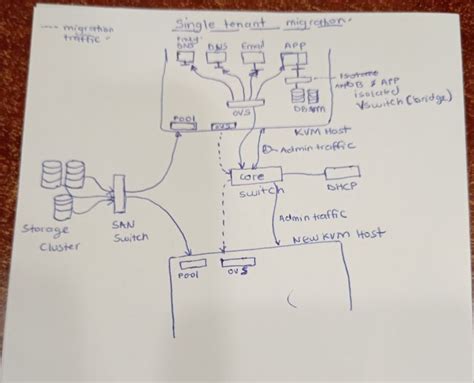 single tenant migration.
---- migration
traffic -
DNS
DNS
Email
APP
DB & APP
isolated
Vswitch (bridge)
DB VM
OVS
POOL
OVS
KVM Host
Admin traffic
core
switch
DHCP
Storage
Cluster
SAN
Switch
Admin traffic
New KVM Host
POOL
OVS